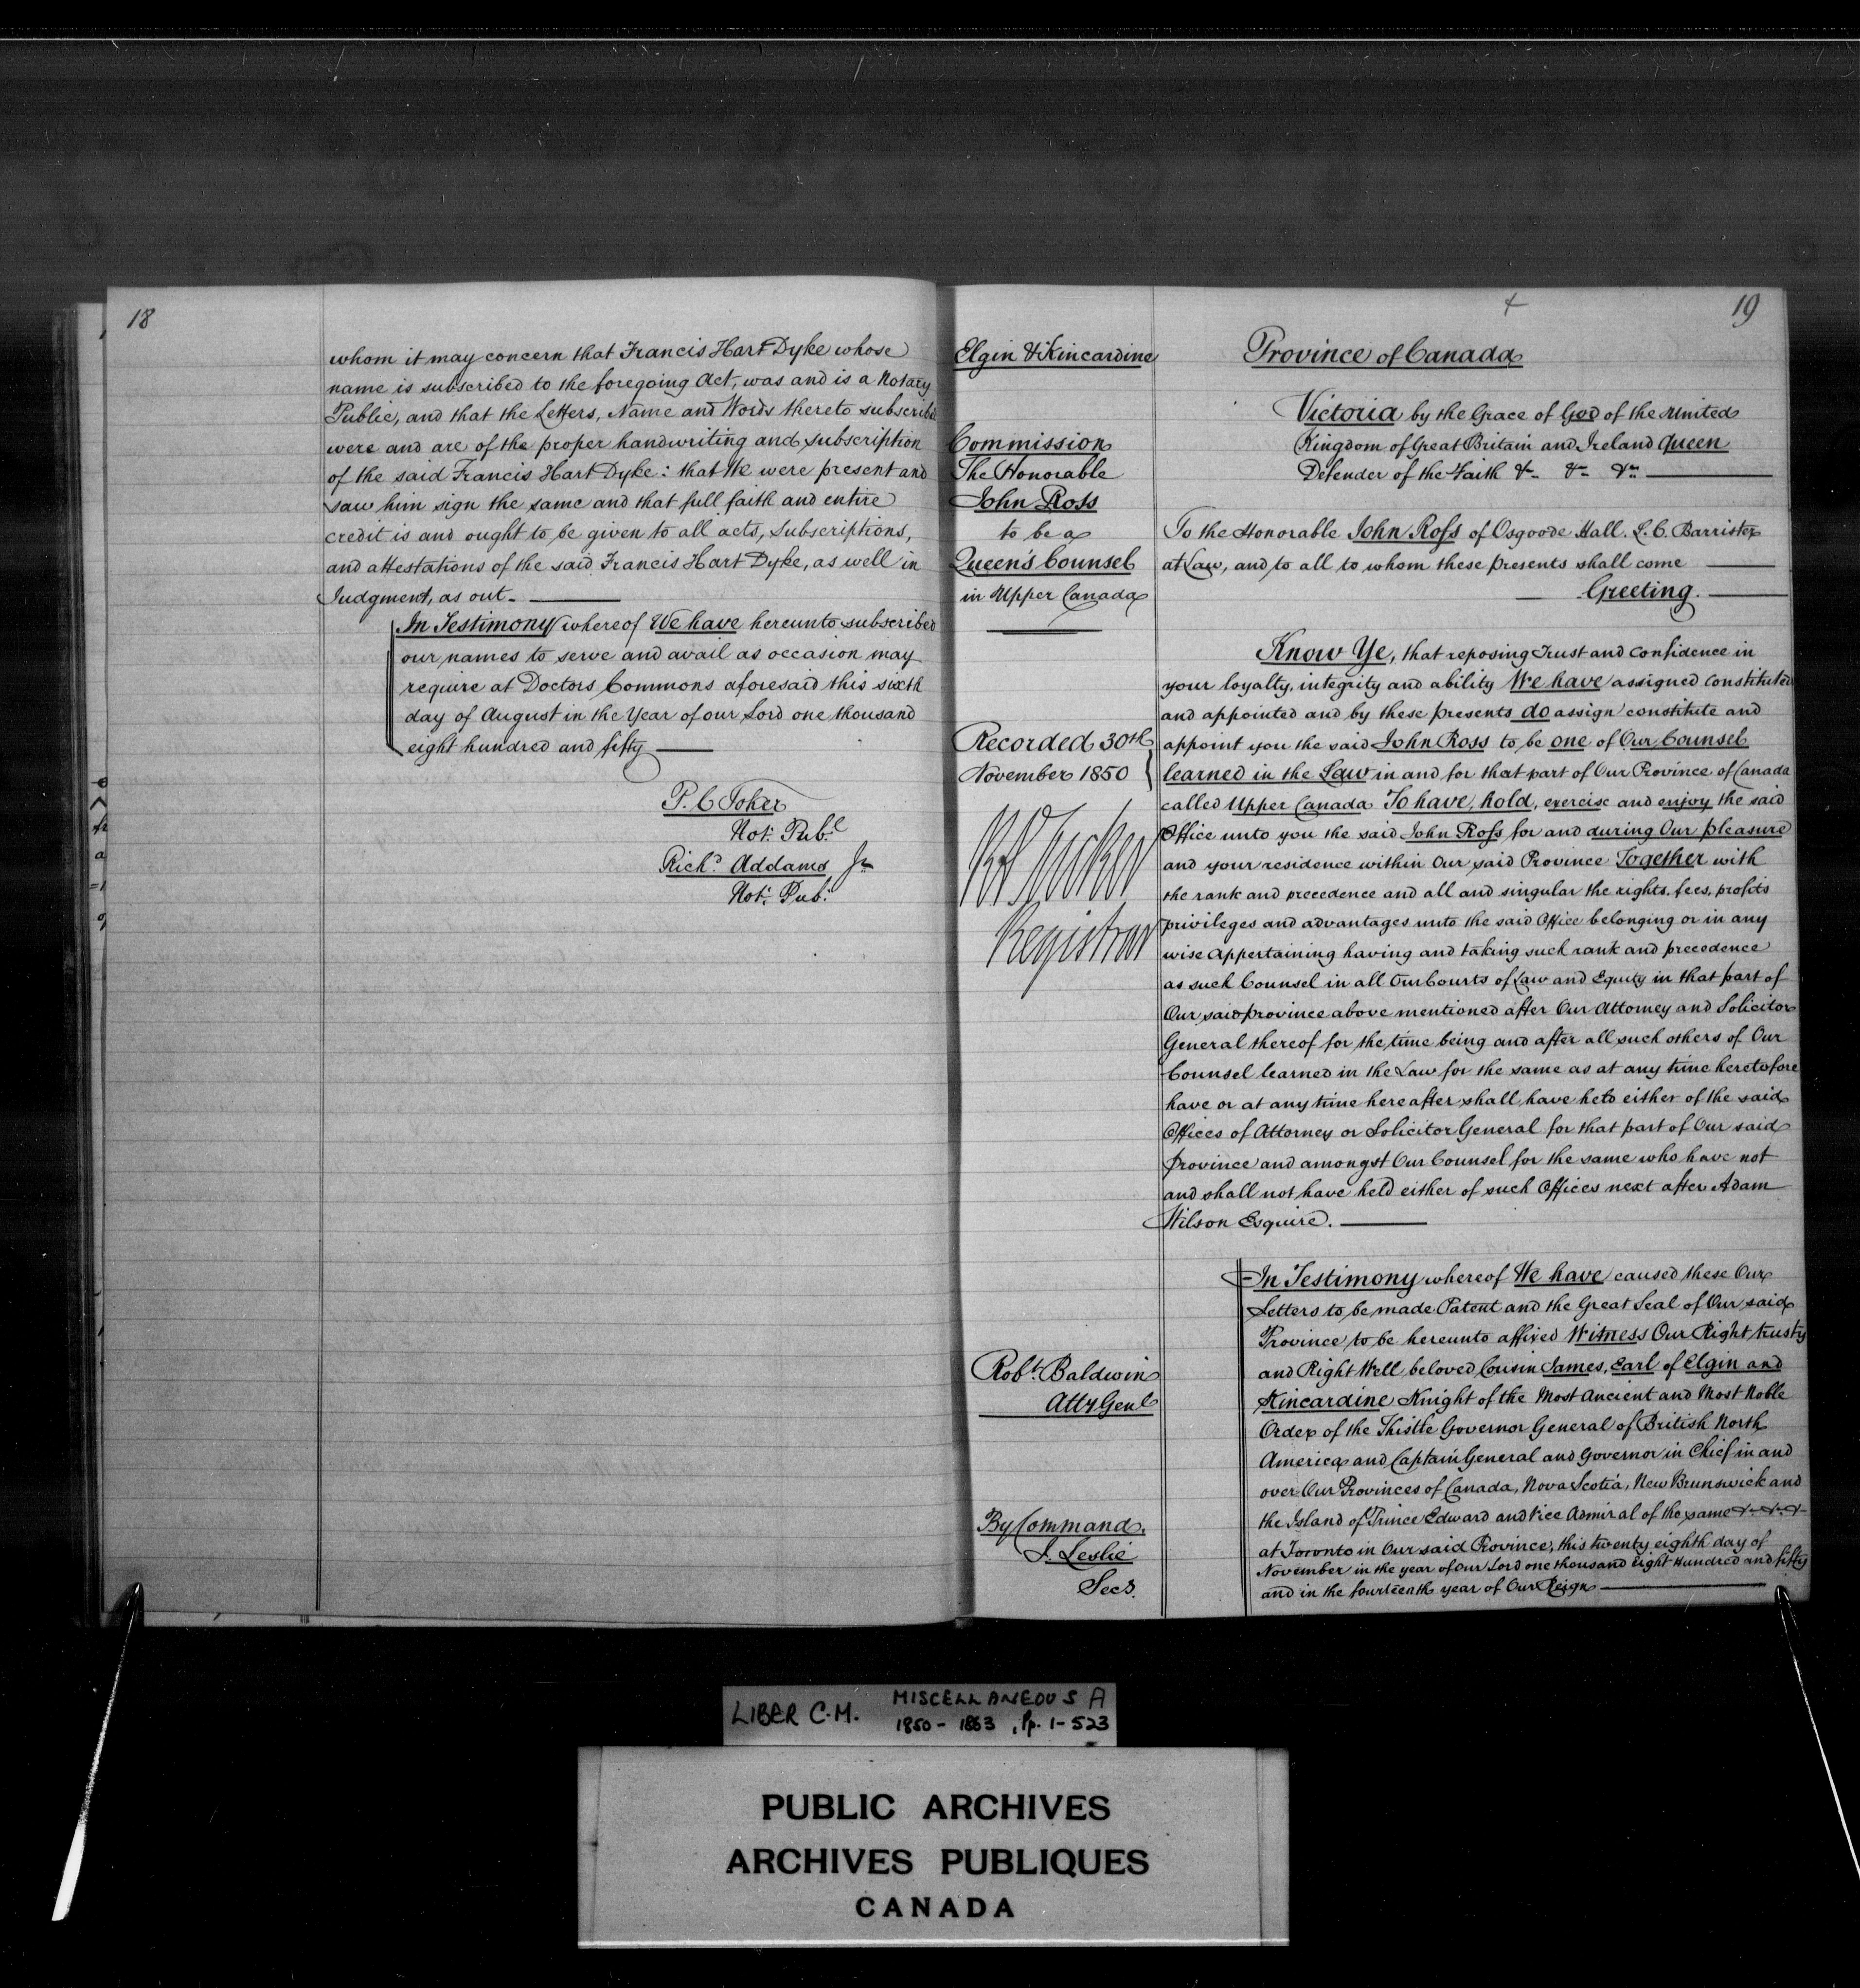 18
whom it may concern that Francis Hart Dyke whose
name is subscribed to the foregoing Act, was and is a Notary
Public, and that the Letters, Name and Words thereto subscribed
were and are of the proper handwriting and subscription
of the said Francis Hart Dyke: that We were present and
saw him sign the same and that full faith and entire
credit is and ought to be given to all acts, Subscriptions,
and attestations of the said Francis Hart Dyke, as well in
Judgment, as out.
In Testimony whereof We have hereunto subscribed
our names to serve and avail as occasion may
require at Doctors Commons aforesaid this sixth
day of August in the Year of our Lord one thousand
eight hundred and fifty
P. C Toker
Not: Pub.l
Rich.d Addams Jr
Not: Pub:
19
Elgin & Kincardine
Commission
The Honorable
John Ross
to be a
Queen's Counsel
in Upper Canada
Recorded 30th
November 1850
Registrar
Robt. Baldwin
Atty Genl
By Command.
J. Leslie
Secy.
Province of Canada
Victoria by the Grace of God of the United
Kingdom of Great Britain and Ireland Queen
Defender of the Faith &c &c &c
To the Honorable John Ross of Osgoode Hall. L. C. Barrister
at Law, and to all to whom these presents shall come
Greeting.
Know Ye, that reposing Trust and Confidence in
your loyalty, integrity and ability We have assigned constituted
and appointed and by these presents do assign constitute and
appoint you the said John Ross to be one of Our Counsel
learned in the Law in and for that part of Our Province of Canada
called Upper Canada To have, hold, exercise and enjoy the said
Office unto you the said John Ross for and during Our pleasure
and your residence within Our said Province Together with
the rank and precedence and all and singular the rights, fees, profits
privileges and advantages unto the said Office belonging or in any
wise appertaining having and taking such rank and precedence
as such Counsel in all Our Courts of Law and Equity in that part of
Our said province above mentioned after Our Attorney and Solicitor
General thereof for the time being and after all such others of Our
Counsel learned in the Law for the same as at any time heretofore
have or at any time hereafter shall have held either of the said
Offices of Attorney or Solicitor General for that part of Our said
province and amongst Our Counsel for the same who have not
and shall not have held either of such Offices next after Adam
Wilson Esquire.
In Testimony whereof We have caused these Our
Letters to be made Patent and the Great Seal of Our said
Province to be hereunto affixed Witness Our Right trusty
and Right Well beloved Cousin James, Earl of Elgin and
Kincardine Knight of the Most Ancient and Most Noble
Order of the Thistle Governor General of British North
America and Captain General and Governor in Chief in and
over Our Provinces of Canada, Nova Scotia, New Brunswick and
the Island of Prince Edward and Vice Admiral of the same &c &c &c
at Toronto in Our said Province, this twenty eighth day of
November in the year of Our Lord one thousand Eight Hundred and fifty
and in the fourteenth year of Our Reign
LIBER C.M. MISCELLANEOUS A
1850 - 1863, Pp. 1-523
PUBLIC ARCHIVES
ARCHIVES PUBLIQUES
CANADA